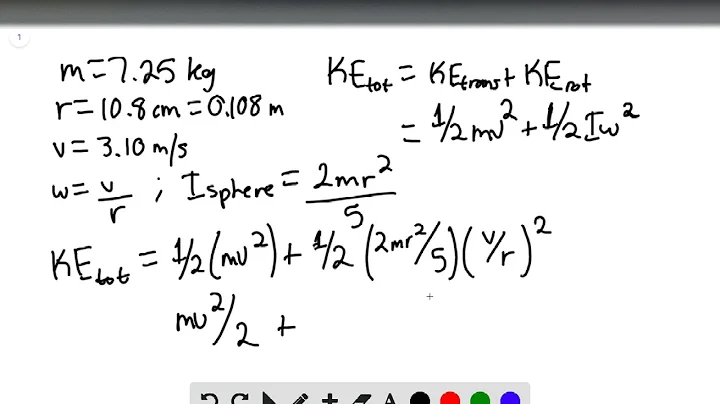 1
m=7.25 kg
r=10.8 cm=0.108 m
v=3.10 m/s
w=v/r ; I sphere=2mr²/5
KE tot = KE trans + KE rot
= 1/2 mv² + 1/2 Iw²
KE tot = 1/2 (mv²) + 1/2 (2mr²/5)(v/r)²
mv²/2 +
A